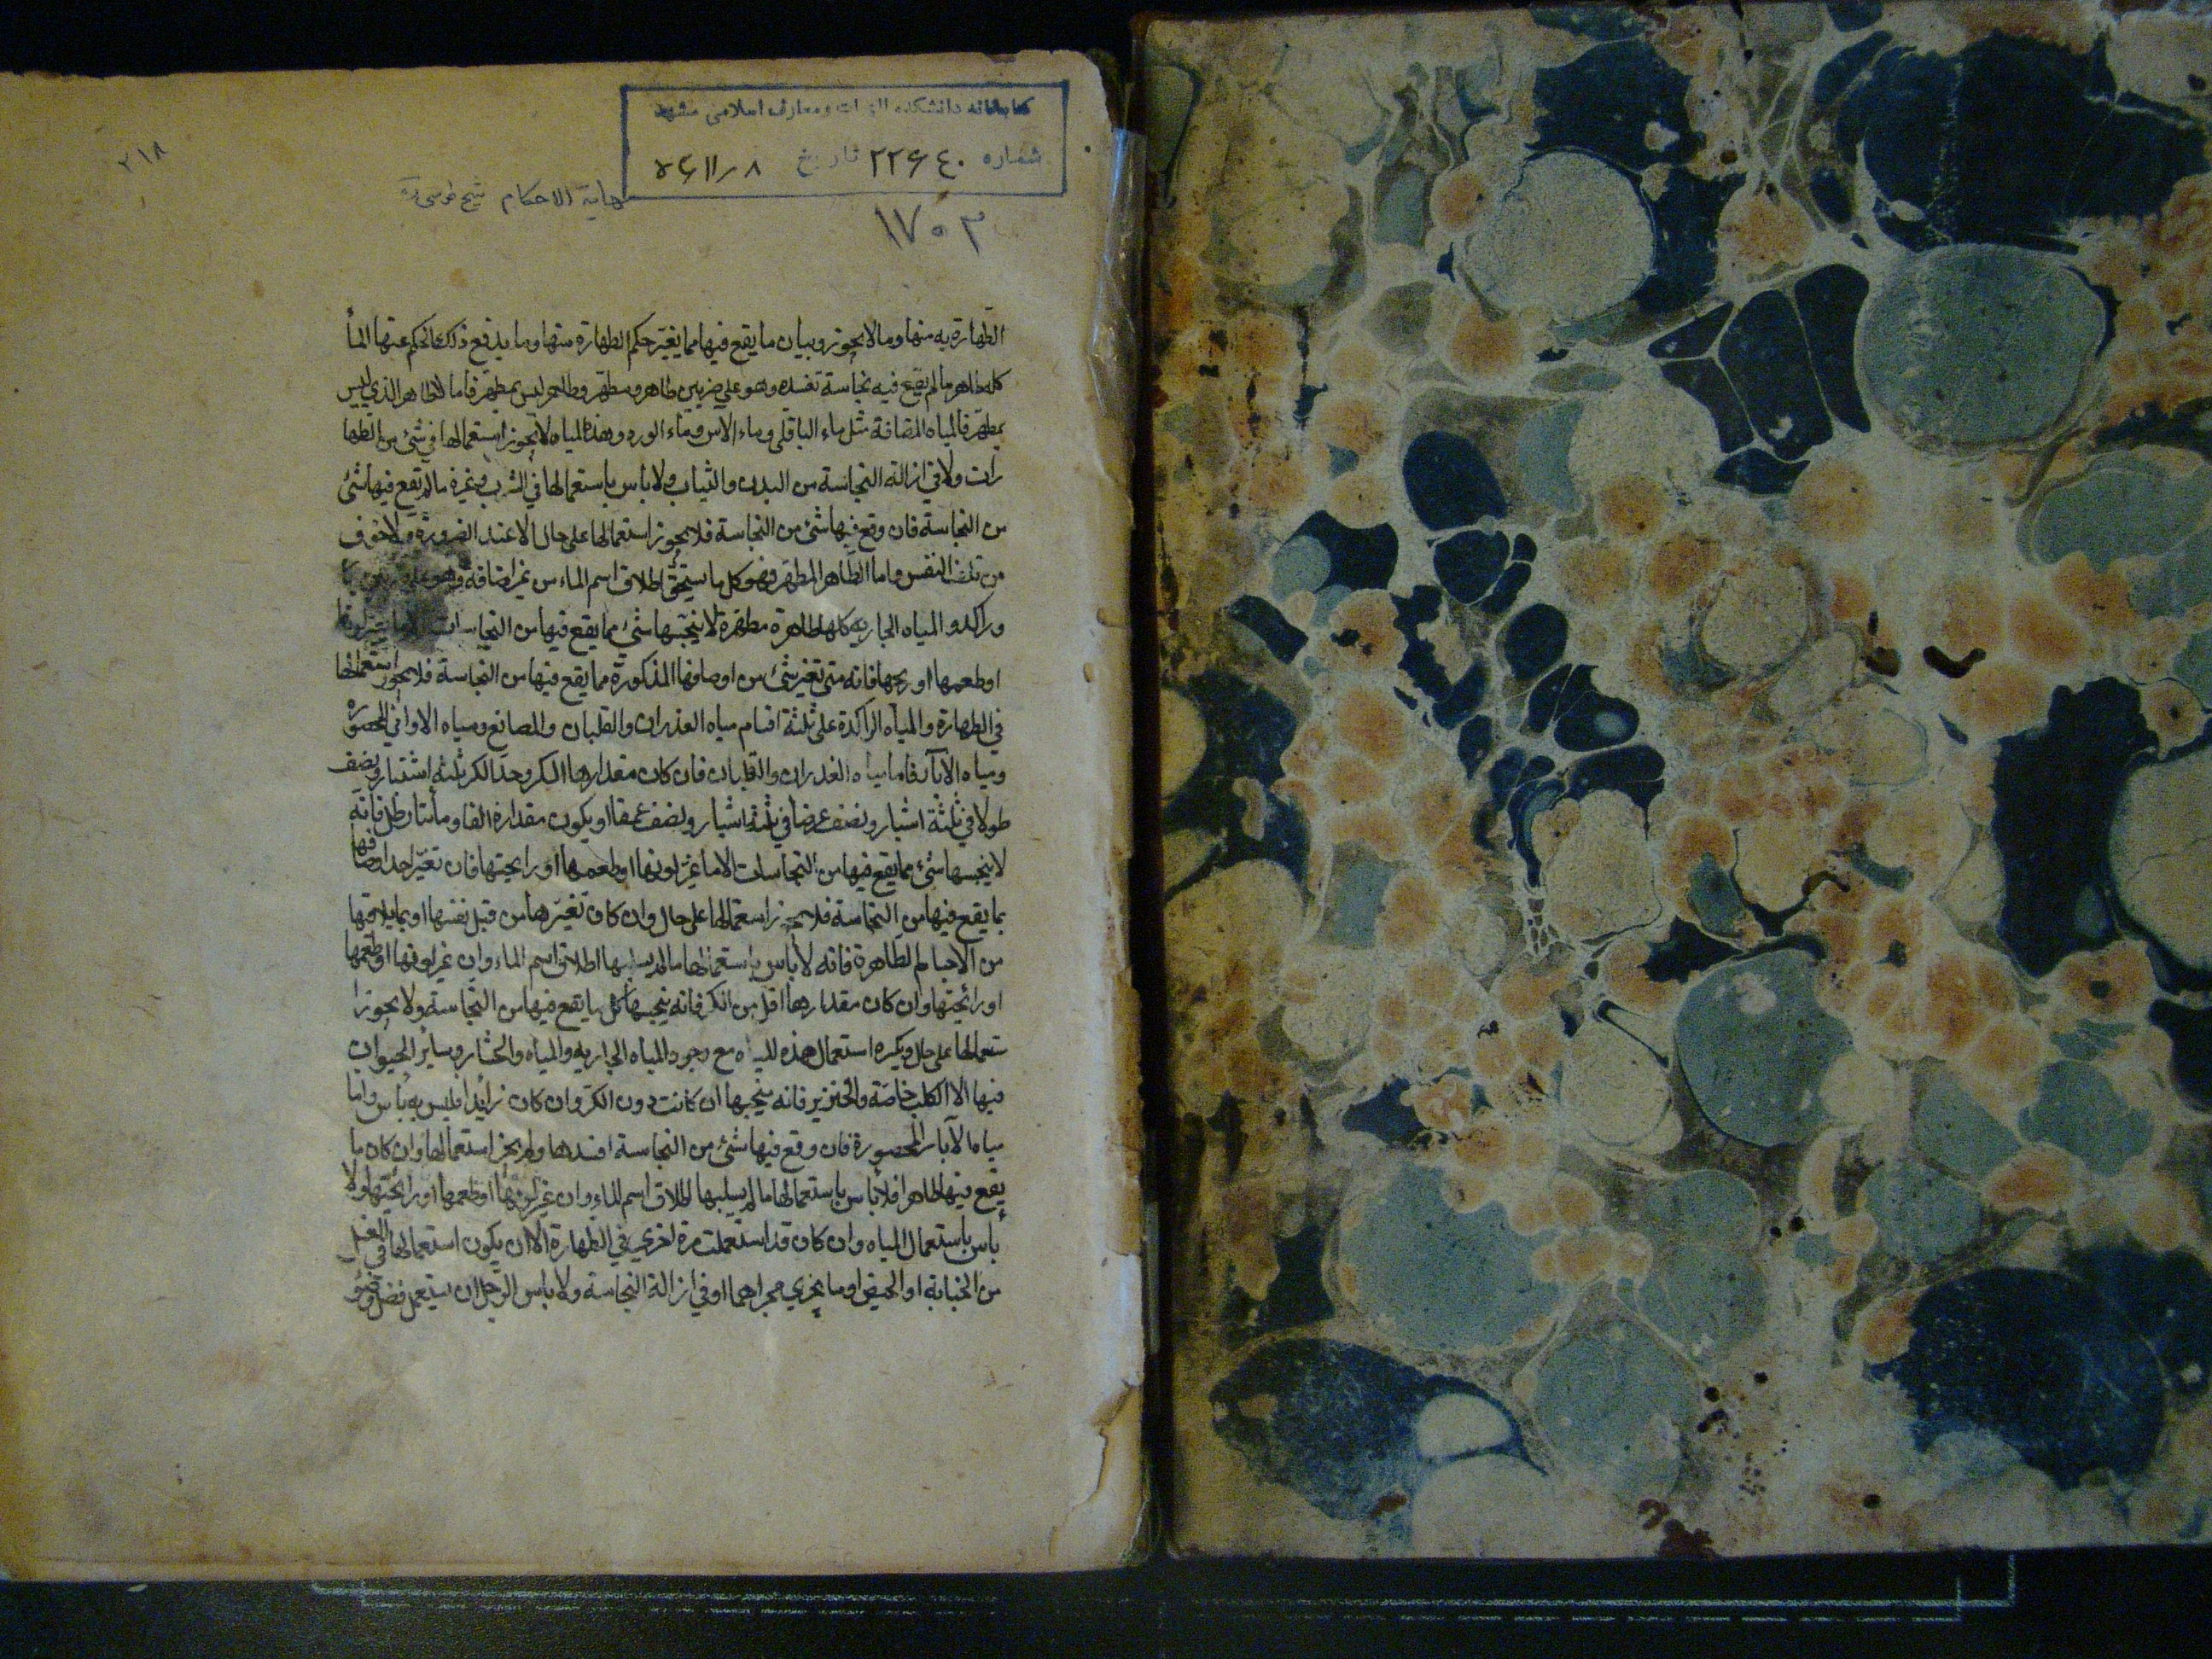 کتابخانه دانشکده الهیات و معارف اسلامی مشهد
شماره ۲۲۶۴۰ تاریخ ۵۶/۱۱/۸
۲۱۸
نهایة الاحکام شیخ طوسی ره
۱۷۰۳
الطهارة به منها وما لا يجوز وبيان ما يقع فيها مما يغير حكم الطهارة منها وما يدفع ذلك الحكم عنها الما
كله طاهر ما لم يقع فيه نجاسة تفسده وهو على ضربين طاهر ومطهر وطاهر ليس بمطهر فاما الطاهر الذي ليس
بمطهر فالمياه المضافة مثل ماء الباقلى وماء الاس وماء الورد وهذه المياه لا يجوز استعمالها في شئ من الطها
رات ولا في ازالة النجاسة من البدن والثياب ولا باس باستعمالها في الشرب وغيره ما لم يقع فيها شئ
من النجاسة فان وقع فيها شئ من النجاسة فلا يجوز استعمالها على حال الا عند الضرورة والخوف
من تلف النفس واما الطاهر المطهر وهو كل ما يستحق اطلاق اسم الماء من غير اضافة وهو على
وراكد والمياه الجارية كلها طاهرة مطهرة لا ينجسها شئ مما يقع فيها من النجاسات الا ما يغير لونها
او طعمها او ريحها فانه متى تغير شئ من اوصافها المذكورة مما يقع فيها من النجاسة فلا يجوز استعمالها
في الطهارة والمياه الراكدة على ثلثة اقسام مياه الغدران والقلبان والمصانع ومياه الاواني المحصوره
ومياه الآبار فاما مياه الغدران والقلبان فان كان مقدارها الكر وحد الكر ثلثه اشبار ونصف
طولا في ثلثة اشبار ونصف عرضا في ثلثة اشبار ونصف عمقا او يكون مقداره الفا ومأتا رطل فانه
لا ينجسها شئ مما يقع فيها من النجاسات الا ما غير لونها او طعمها او رايحتها فان تغير احد اوصافها
بما يقع فيها من النجاسة فلا يجوز استعمالها على حال وان كان تغيرها من قبل نفسها او بما يلاقيها
من الاجسام الطاهرة فانه لا بأس باستعمالها ما لم يسلبها اطلاق اسم الماء وان غير لونها او طعمها
او رائحتها وان كان مقدارها اقل من الكر فانه ينجسها كل ما يقع فيها من النجاسة ولا يجوز ا
ستعمالها على حال ويكره استعمال هذه المياه مع وجود المياه الجارية والمياه والحشار وساير الحيوان
فيها الا الكلب خاصة والخنزير فانه ينجسها ان كانت دون الكر وان كان زائدا فليس به بأس واما
مياه الآبار المحصورة فان وقع فيها شئ من النجاسة افسدها ولم يجز استعمالها وان كان ما
يقع فيها طاهرا فلا بأس باستعمالها ما لم يسلبها اطلاق اسم الماء وان غير لونها او طعمها او رائحتها ولا
بأس باستعمال المياه وان كان قد استعملت مرة اخرى في الطهارة الا ان يكون استعمالها في الغسل
من الجنابة او الحيض او ما يجري مجراهما او في ازالة النجاسة ولا باس الرجل ان يستعمل فضل وضوء